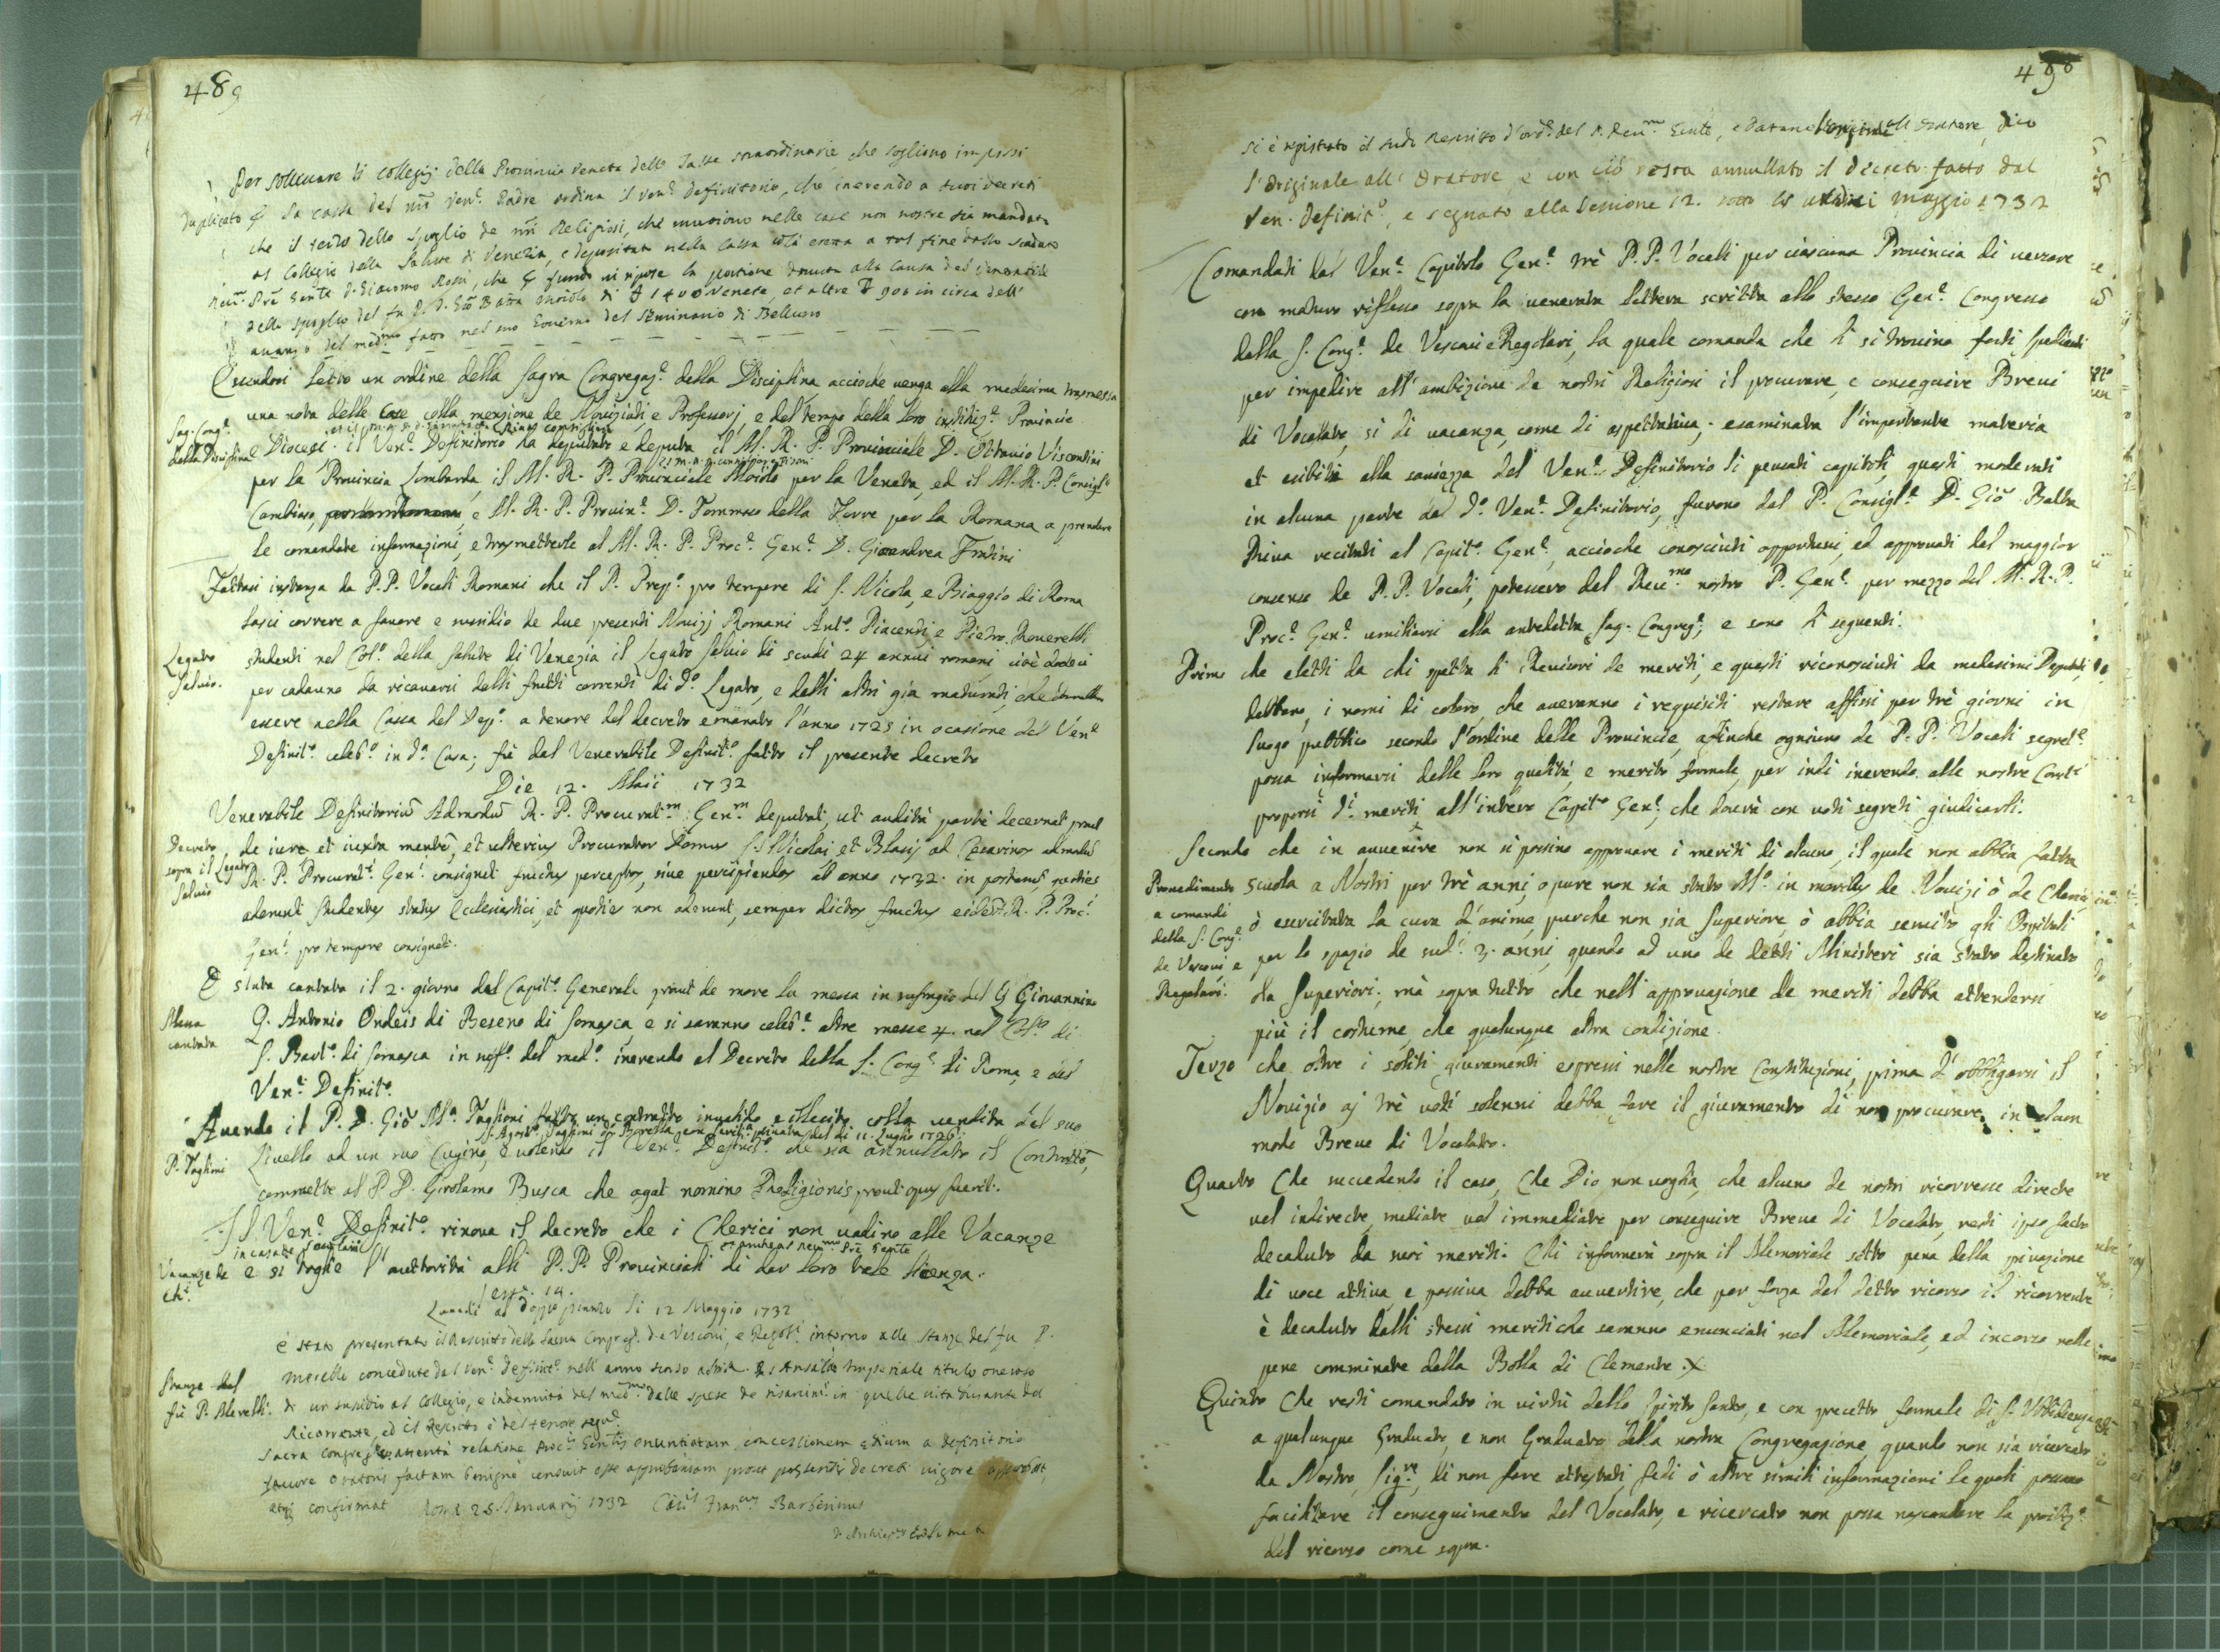 489
Per solleuare li collegij della Prouincia Veneta delle tasse straordinarie, che sogliono imporsi
Duplicato la cassa del Ven.e Padre ordina il Ven.e Definitorio, che inerendo a suoi decreti
che il terzo dello spoglio de nri Religiosi, che muoiono nelle case non nostre sia mandato
al Collegio della Salute di Venezia, e depositato nella cassa colà eretta a tal fine dallo
D. Giacomo Rossi, che la portione douuta alla causa del Venerabile
dello spoglio del fu P. D. Gio Batta di 1400 Venete, et altre 900 in circa dell'
auanzo del med.mo fatto nel suo Gouerno del Seminario di Belluno
Essendosi letto un ordine della Sagra Congregaz.e della Disciplina accioche uenga alla medesima trasmessa
una nota delle Case colla menzione de Nouiziati, e Professorj, e del tempo della loro instituz.e Prouincie
Sag. Cong.e
della Disciplina
e Diocesi. il Ven.e Definitorio ha deputato e deputa il M. R. P. Prouinciale D. Ottauio Viscontini
per la Prouincia Lombarda, il M. R. P. Prouinciale Moiolo per la Veneta, ed il M. R. P. Consigl.e
Cambiaso, e M. R. P. Prouin.e D. Tommaso della Torre per la Romana a prendere
le comandate informazioni, e trasmetterle al M. R. P. Proc.e Gen.e D. Gioandrea
Fattasi instanza da P.P. Vocali Romani che il P. Prep.o pro tempore di S. Nicola, e Biaggio di Roma
lasci correre a fauore e sussidio de due presenti Nouizj Romani Ant.o Piacenti, e Pietro Rouerelli
Legato
Saluio.
studenti nel Col.o della Salute di Venezia il Legato Saluio di scudi 24 annui romani cioè dodeci
per cadauno da ricauarsi dalli frutti correnti di d.o Legato, e dalli altri già maturati, che
essere nella Cassa del Dep.o a tenore del decreto emanato l'anno 1723 in ocasione del Ven.e
Definit.o celeb.o in d.a Casa; fù dal Venerabile Definit.o fatto il presente decreto
Die 12. Maii 1732
Venerabile Definitoriū Admodū R. P. Procurat.m Gen.m deputat, ut auditā parte decernat prout
Decreto
sopra il Legato
Saluio
de iure et iuxta mentē, et ulterius Procurator Domus SS Nicolai et Blasij ad Cæsarinos admodū
R. P. Procurat.i Gen.i consignet fructus perceptos, siue percipiendos ab anno 1732. in posterum, quoties
aderunt studentes status Ecclesiastici, et quoties non aderunt, semper dictos fructus eidē R. P. Proc.i
Gen.i pro tempore consignet.
È stata cantata il 2. giorno del Capit.o Generale prout de more la messa in suffragio del Giouannino
Messa
cantata
Q. Antonio Ondeis di Beseno di Somasca, e si saranno celeb.e altre messe 4. nel Col.o di
S. Bart.o di Somasca in suff.o del med.o inerendo al Decreto della S. Cong.e di Roma, e del
Ven.e Definit.o
Auendo il P. D. Gio M.a Taglioni fatto un contratto inualido e illecito colla uendita del suo
P. Taglioni
Liuello ad un suo Cugino, e uolendo il Ven.e Definit.o che sia annullato il Contratto,
commette al P. D. Girolamo Busca che agat nomine Religionis prout opus fuerit.
Il Ven.e Definit.o rinoua il decreto che i Clerici non uadino alle Vacanze
in case de secolari
Vacanze de
Ch.i
e si toglie l'auttorità alli P.P. Prouinciali di dar loro tale licenza.
Sess. 14.
Lunedi al doppo pranzo li 12 Maggio 1732
è stato presentato il Rescritto della Sacra Congreg. de Vescoui, e Regol.i intorno alle stanze del fu P.
Stanze del
fù P. Merelli.
Merelli concedute dal Ven.e Definit.o nell'anno scorso Ansaldo Imperiale titulo oneroso
di un sussidio al Collegio, e indennità del med.mo dalle spese de risarcim.ti in quelle uita durante del
Ricorrente, ed il Rescritto è del tenore segu.e
Sacra Congreg.o attenta relatione Proc.is Gen.lis enuntiatam concessionem ædium a Definitorio
fauore Oratoris factam benigne censuit esse approbandam prout præsentis decreti uigore approbat,
atq confirmat Roma 28 Januarij 1732 Car.lis Fran.cus Barberinus
490
si è registrato il sud.o Rescritto d'ord.e del P. Reu.mo Gente, e datane l'originale all'oratore, dico
l'originale all'Oratore, e con ciò resta annullato il decreto fatto dal
Ven. Definit.o, e segnato alla Sessione 12. sotto li undici maggio 1732
Comandati dal Ven.e Capitolo Gen.e trè P.P. Vocali per ciascuna Prouincia di uersare
con maturo riflesso sopra la uenerata lettera scritta allo stesso Gen.e Congresso
dalla S. Cong.e de Vescoui e Regolari, la quale comanda che si trouino forti spedienti
per impedire all'ambizione de nostri Religiosi il procurare, e conseguire Breui
di Vocalato, si di uacanza, come di aspettatiua; esaminata l'importante materia
et esibiti alla sauiezza del Ven.e Definitorio li pensati capitoli, questi moderati
in alcuna parte dal d.o Ven.e Definitorio, furono dal P. Consigl.e D. Gio Batta
Riua recitati al Capit.o Gen.e, accioche conosciuti opportuni, ed approuati dal maggior
consenso de P.P. Vocali, potessero dal Reu.mo nostro P. Gen.e per mezzo del M. R. P.
Proc.e Gen.e umiliarsi alla antedetta Sag. Congreg.e; e sono li seguenti.
Primo che eletti da chi spetta li Reuisori de meriti, e questi riconosciuti da medesimi Deputati,
debbano i nomi di coloro, che aueranno i requisiti restare affissi per trè giorni in
luogo pubblico secondo l'ordine delle Prouincie, affinche ogniuno de P. P. Vocali segret.e
possa informarsi delle loro qualità, e merito formale, per indi inerendo alle nostre Cost.i
proporsi d.i meriti all'intero Capit.o Gen.e, che dourà con uoti segreti giudicarli.
Secondo che in auuenire non si possino approuare i meriti di alcuno, il quale non abbia fatta
Prouedimento
a comandi
della S. Cong.e
de Vescoui, e
Regolari.
scuola a Nostri per trè anni, o pure non sia stato M.o in moribus de Nouizi ò de Cherici,
ò esercitata la cura d'anime, purche non sia Superiore, ò abbia seruito gli Ospitali
per lo spazio de sud.i 3. anni, quando ad uno de detti Ministeri sia stato destinato
da Superiori; mà sopra tutto che nell'approuazione de meriti debba attendersi
più il costume, che qualunque altra condizione.
Terzo che oltre i soliti giuramenti espressi nelle nostre Constituzioni, prima d'obbligarsi il
Nouizio aj trè uoti solenni debba fare il giuramento di non procurare in alcun
modo Breue di Vocalato.
Quarto Che succedendo il caso, Che Dio non uoglia, che alcuno de nostri ricorresse directe
uel indirecte, mediate uel immediate per conseguire Breue di Vocalato, resti ipso facto
decaduto da suoi meriti. Chi informerà sopra il Memoriale sotto pena della priuazione
di uoce attiua, e passiua debba auuertire, che per forza del detto ricorso il ricorrente
è decaduto dalli stessi meriti che saranno enunciati nel Memoriale, ed incorso nelle
pene comminate dalla Bolla di Clemente X.
Quinto Che resti comandato in uirtù dello Spirito Santo, e con precetto formale di S. Vbbidienza
a qualunque Graduato, e non Graduato della nostra Congregazione, quando non sia ricercato
da Nostro Sig.re, di non fare attestati, fedi ò altre simili informazioni le quali possano
facilitare il conseguimento del Vocalato, e ricercato non possa nascondere la proibiz.e
del ricorso come sopra.